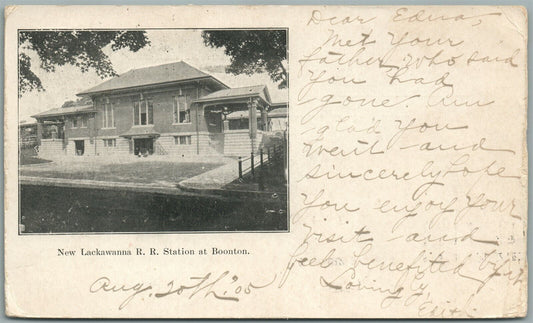 Dear Edna,
Met your
father who said
you had
gone. Am
glad you
went and
sincerely hope
you enjoy your
visit and
feel benefited by it
Lovingly
Edith
New Lackawanna R. R. Station at Boonton.
Aug. 20th, '05